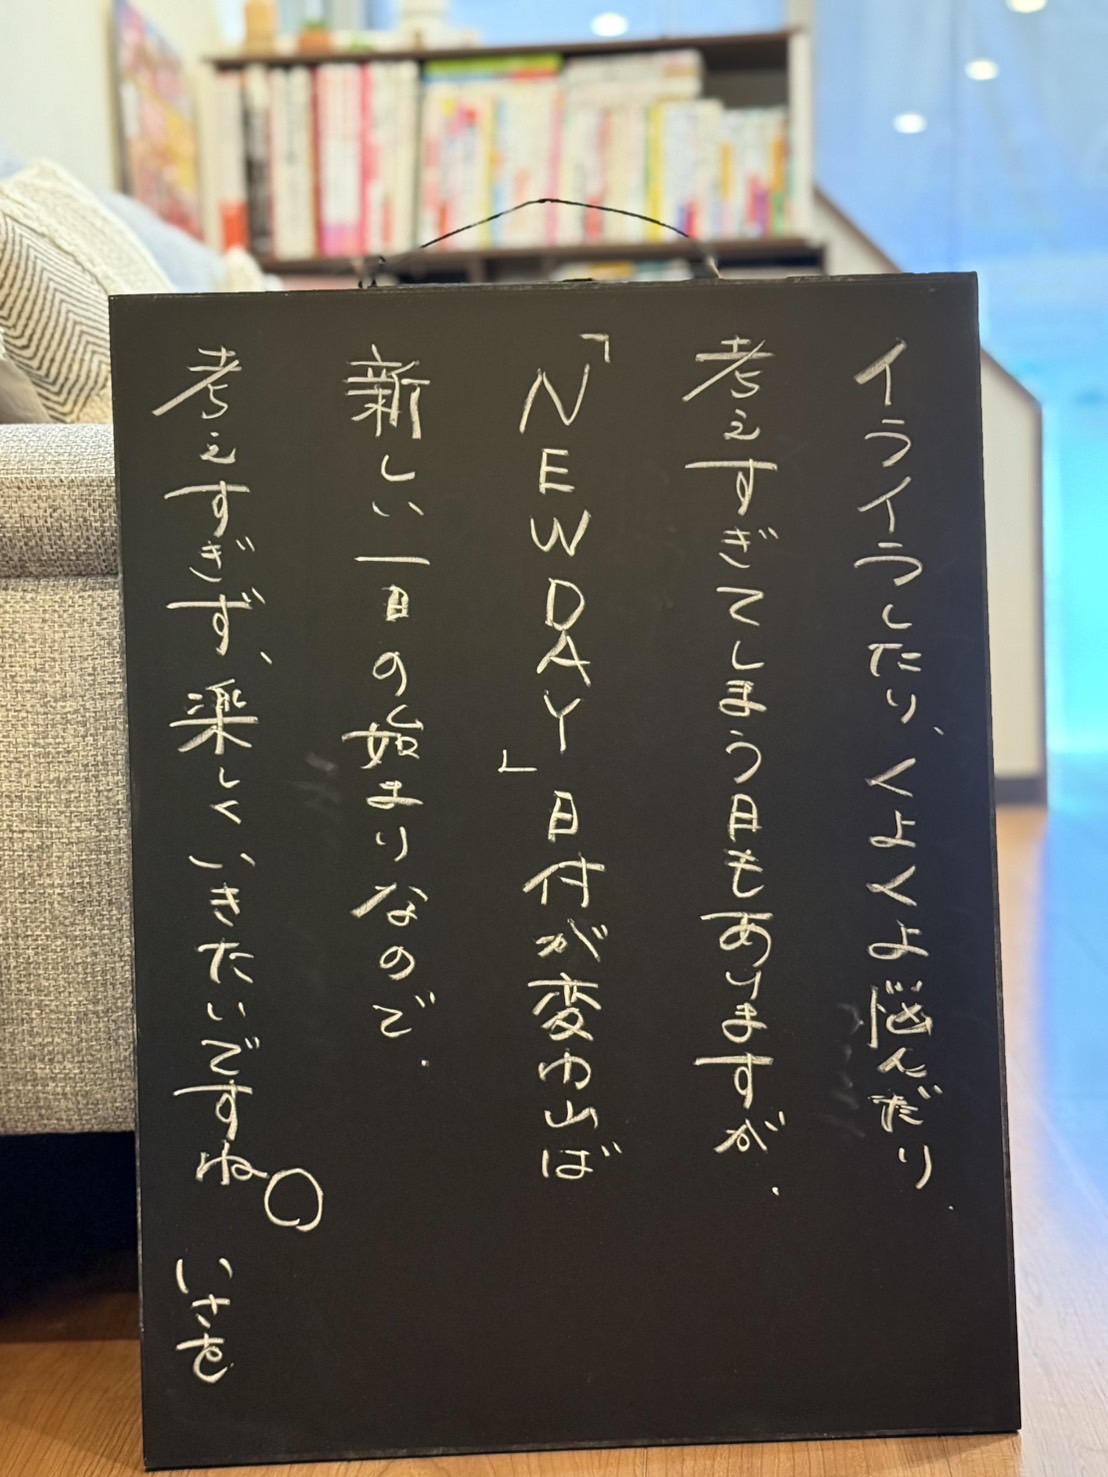 イライラしたり、くよくよ悩んだり、
考えすぎてしまう日もありますが、
「NEWDAY」日付が変われば
新しい一日の始まりなので、
考えすぎず、楽しくいきたいですね。
いさを